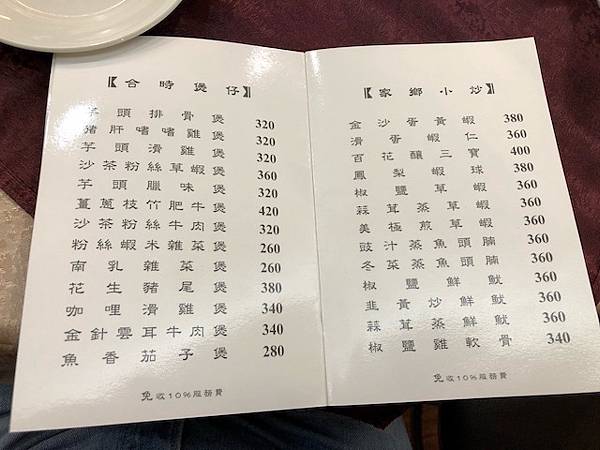 【合時煲仔】
芋頭排骨煲 320
豬肝啫啫雞煲 320
芋頭滑雞煲 320
沙茶粉絲草蝦煲 360
芋頭臘味煲 320
薑蔥枝竹肥牛煲 420
沙茶粉絲牛肉煲 320
粉絲蝦米雜菜煲 260
南乳雜菜煲 260
花生豬尾煲 380
咖哩滑雞煲 340
金針雲耳牛肉煲 340
魚香茄子煲 280
免收10%服務費
【家鄉小炒】
金沙蛋黃蝦 380
滑蛋蝦仁 360
百花釀三寶 400
鳳梨蝦球 380
椒鹽草蝦 360
蒜茸蒸草蝦 360
美極煎草蝦 360
豉汁蒸魚頭腩 360
冬菜蒸魚頭腩 360
椒鹽鮮魷 360
韭黃炒鮮魷 360
蒜茸蒸鮮魷 360
椒鹽雞軟骨 340
免收10%服務費